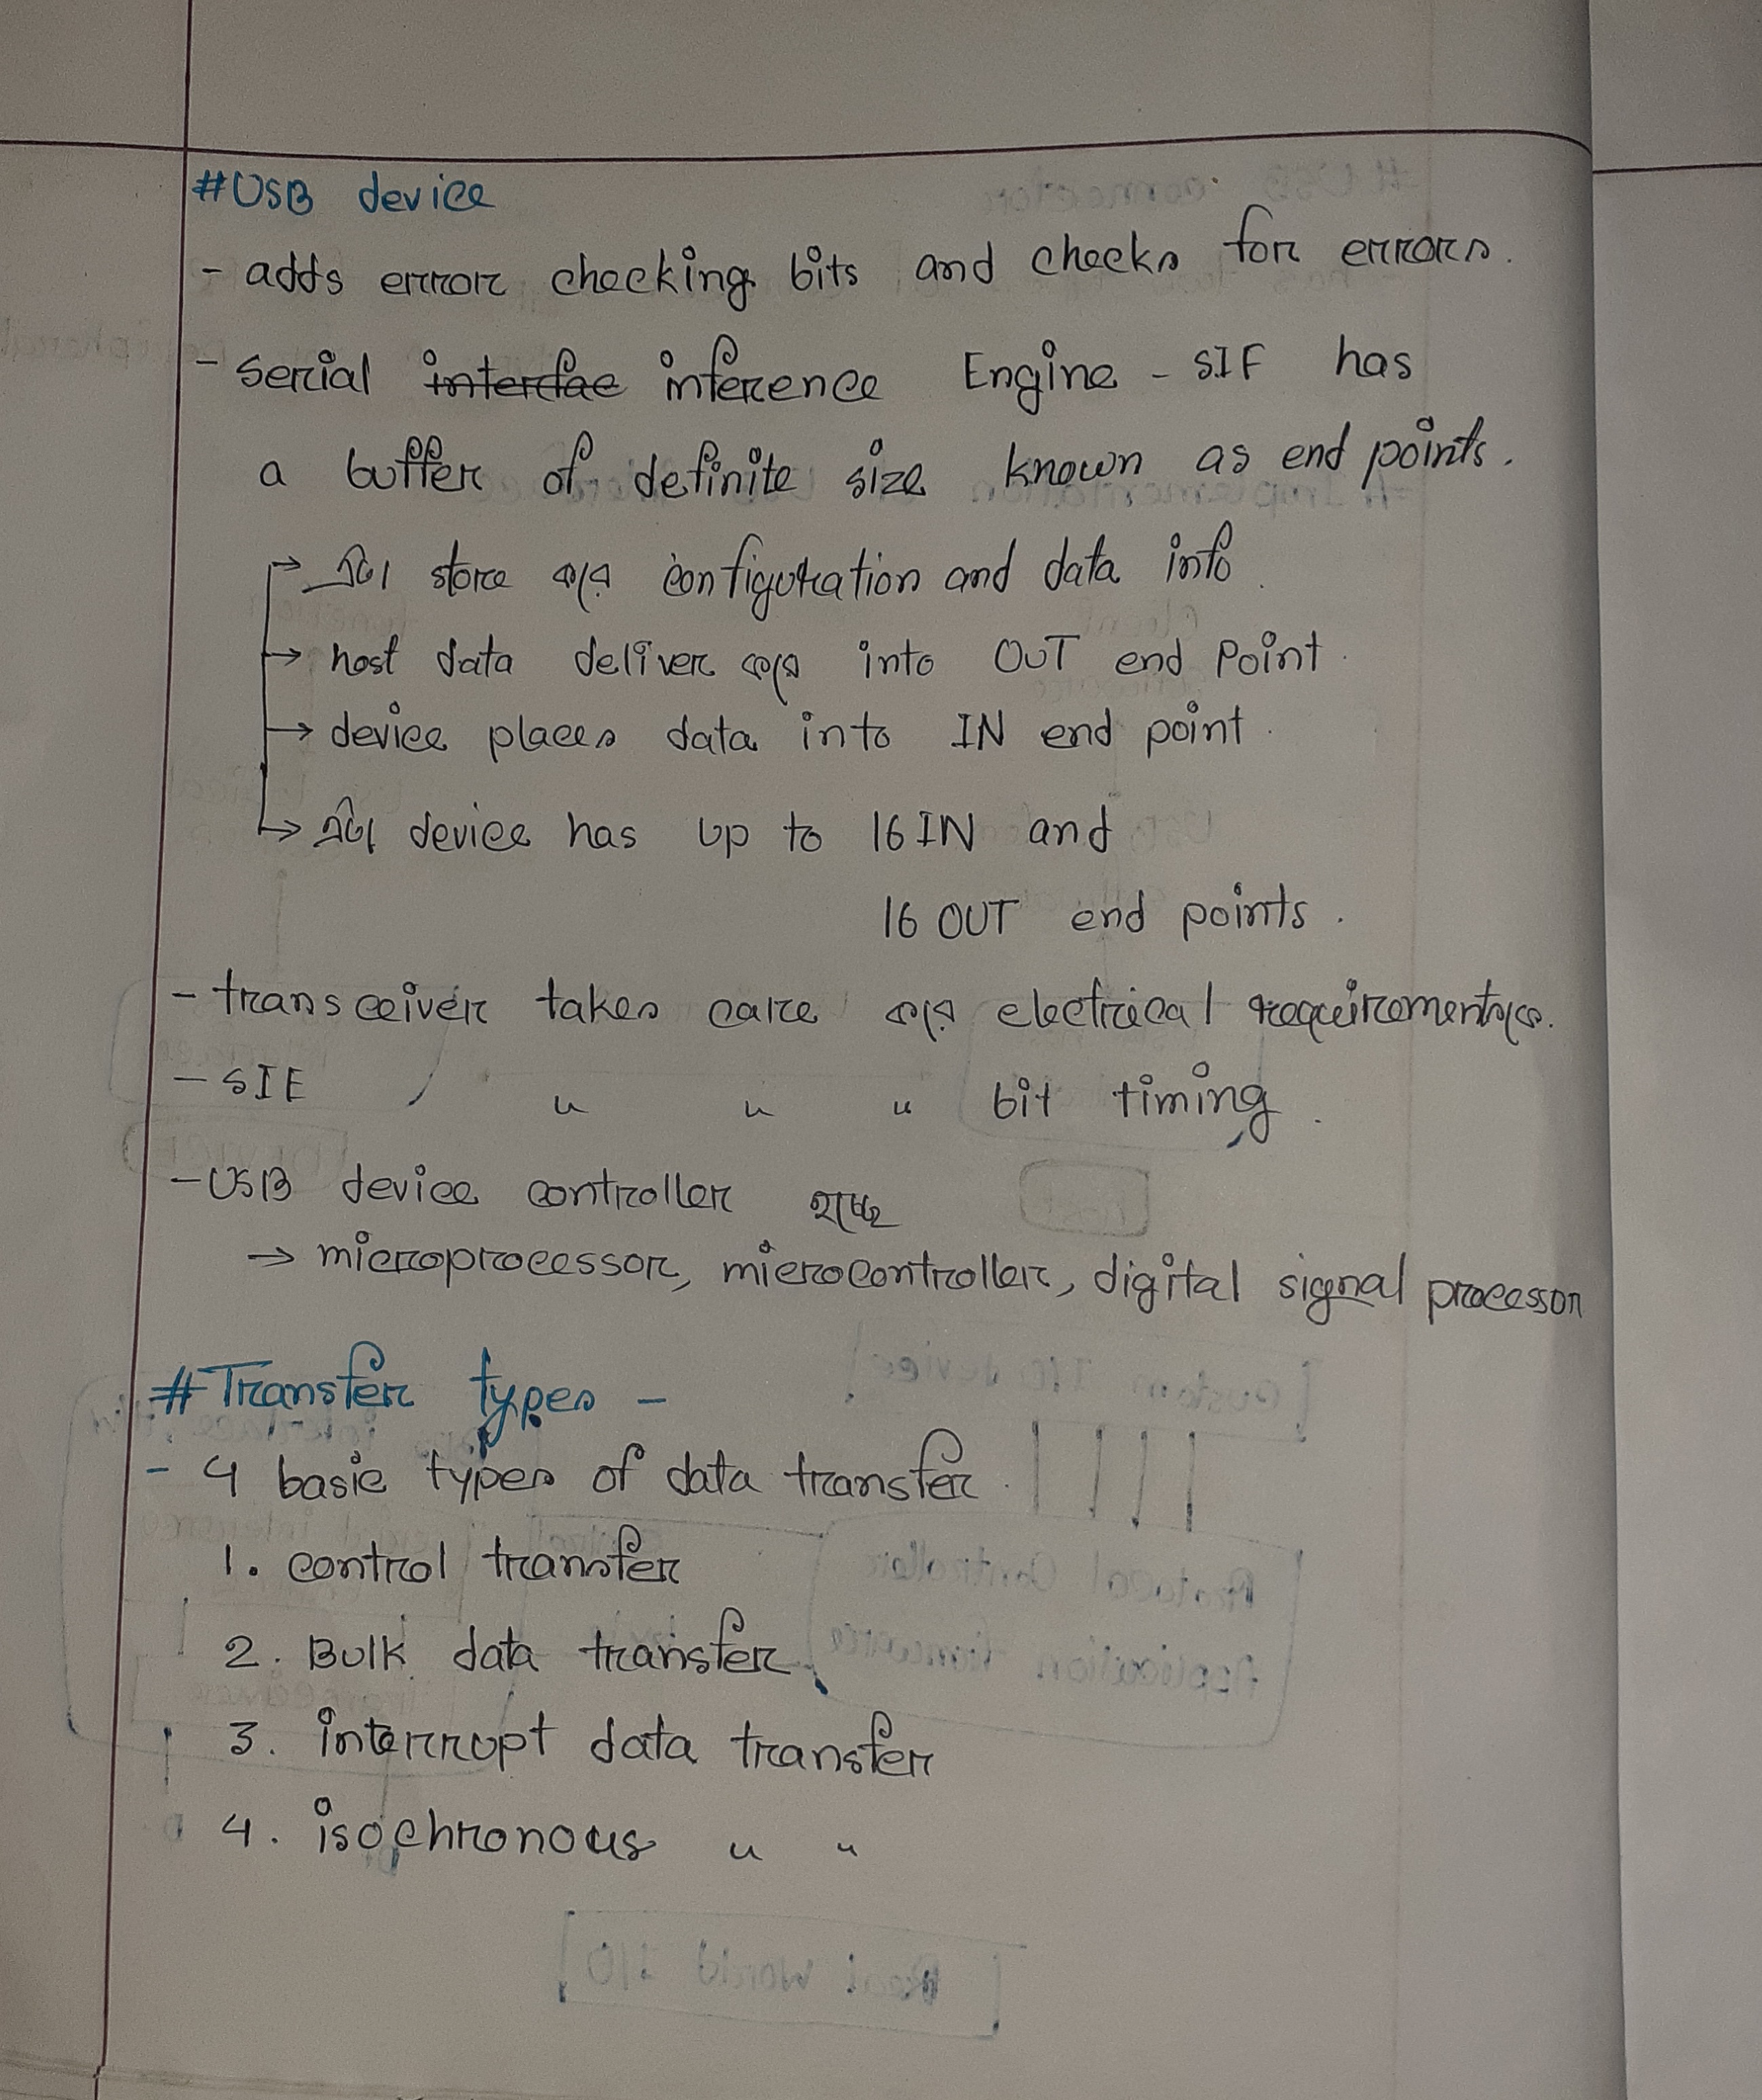 #USB device
- adds error checking bits and checks for errors.
- serial interfac inference Engine - SIF has
a buffer of definite size known as end points.
→ এটা store করে configuration and data info
→ host data deliver করে into OUT end point
→ device places data into IN end point.
→ এটা device has up to 16 IN and
16 OUT end points.
- transceiver takes care করে electrical requirements.
- SIE " " " bit timing.
- USB device controller হচ্ছে
→ microprocessor, microcontroller, digital signal processor
#Transfer types -
- 4 basic types of data transfer
1. control transfer
2. Bulk data transfer
3. interrupt data transfer
4. isochronous " "